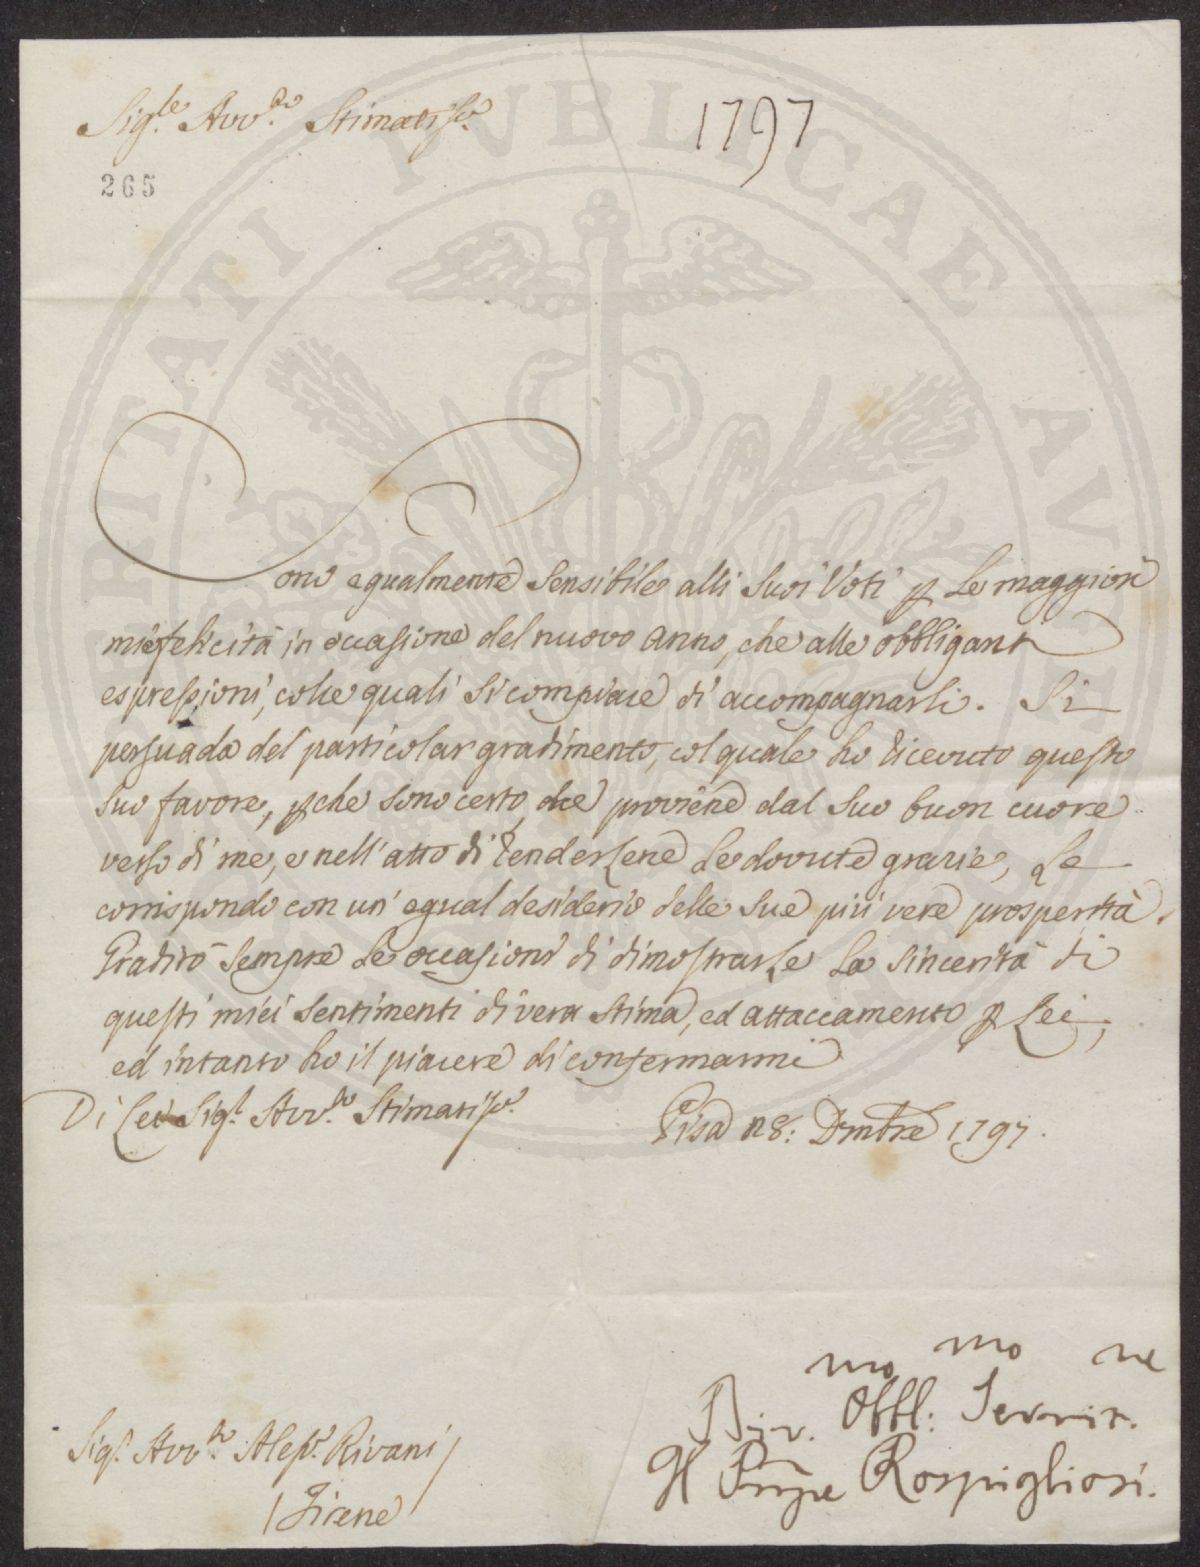 Sig.re Avv.to Stimatiss.o
1797
265
Sono egualmente sensibile alli suoi Voti p le maggiori
mie felicità in occasione del nuovo Anno, che alle obbliganti
espressioni, colle quali si compiace di accompagnarli. Si
persuada del particolar gradimento, col quale ho ricevuto questo
suo favore, pche sono certo, che proviene dal suo buon cuore
verso di me, e nell'atto di rendersene le dovute grazie, Le
corrispondo con un' egual desiderio delle sue più vere prosperità.
Gradirò sempre le occasioni di dimostrarle la sincerità di
questi miei sentimenti di vera stima, ed attaccamento p Lei,
ed intanto ho il piacere di confermarmi
Di Lei Sig.r Avv.to Stimatiss.o
Pisa 28: Dmbre 1797.
Div.mo Obbl:mo Servit.re
Il Prnpe Rospigliosi.
Sig.r Avv.to Aless.o Rivani
/ Firene
VERITATI PVBLICAE